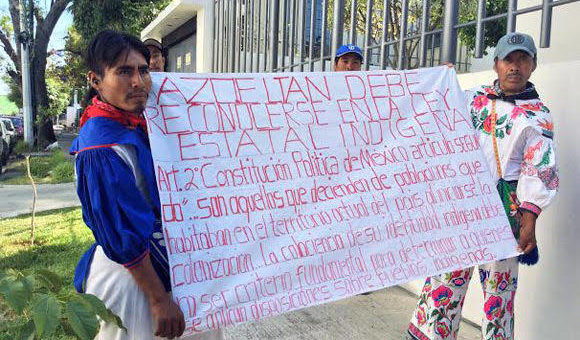 AZQLTAN DEBE
RECONOCERSE EN LA LEY
ESTATAL INDIGENA
Art. 2° Constitución Politica de México articulo segun
do"...son aquellos que decienden de poblaciones que
habitaban en el territorio actual del pais al iniciarse la
colonización... la conciencia de su identidad indigena debe
rá ser criterio fundamental para determinar a quienes
se aplican disposiciones sobre pueblos indigenas